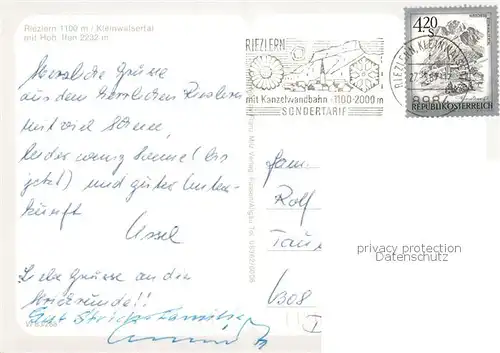 Riezlern 1100 m / Kleinwalsertal
mit Hoh. Ifen 2232 m
Herzliche Grüsse
aus dem herrlichen Riezlern
mit viel Schnee,
leider wenig Sonne (bis
jetzt) und guter Unter-
kunft
Ussel
Liebe Grüsse an die
Gut Strick Familie
RIEZLERN
mit Kanzelwandbahn 1100-2000 m
SONDERTARIF
RIEZLERN, KLEINWALSERTAL
4.20
S
REPUBLIK ÖSTERREICH
Fam.
Rolf
Tau
privacy protection
Datenschutz